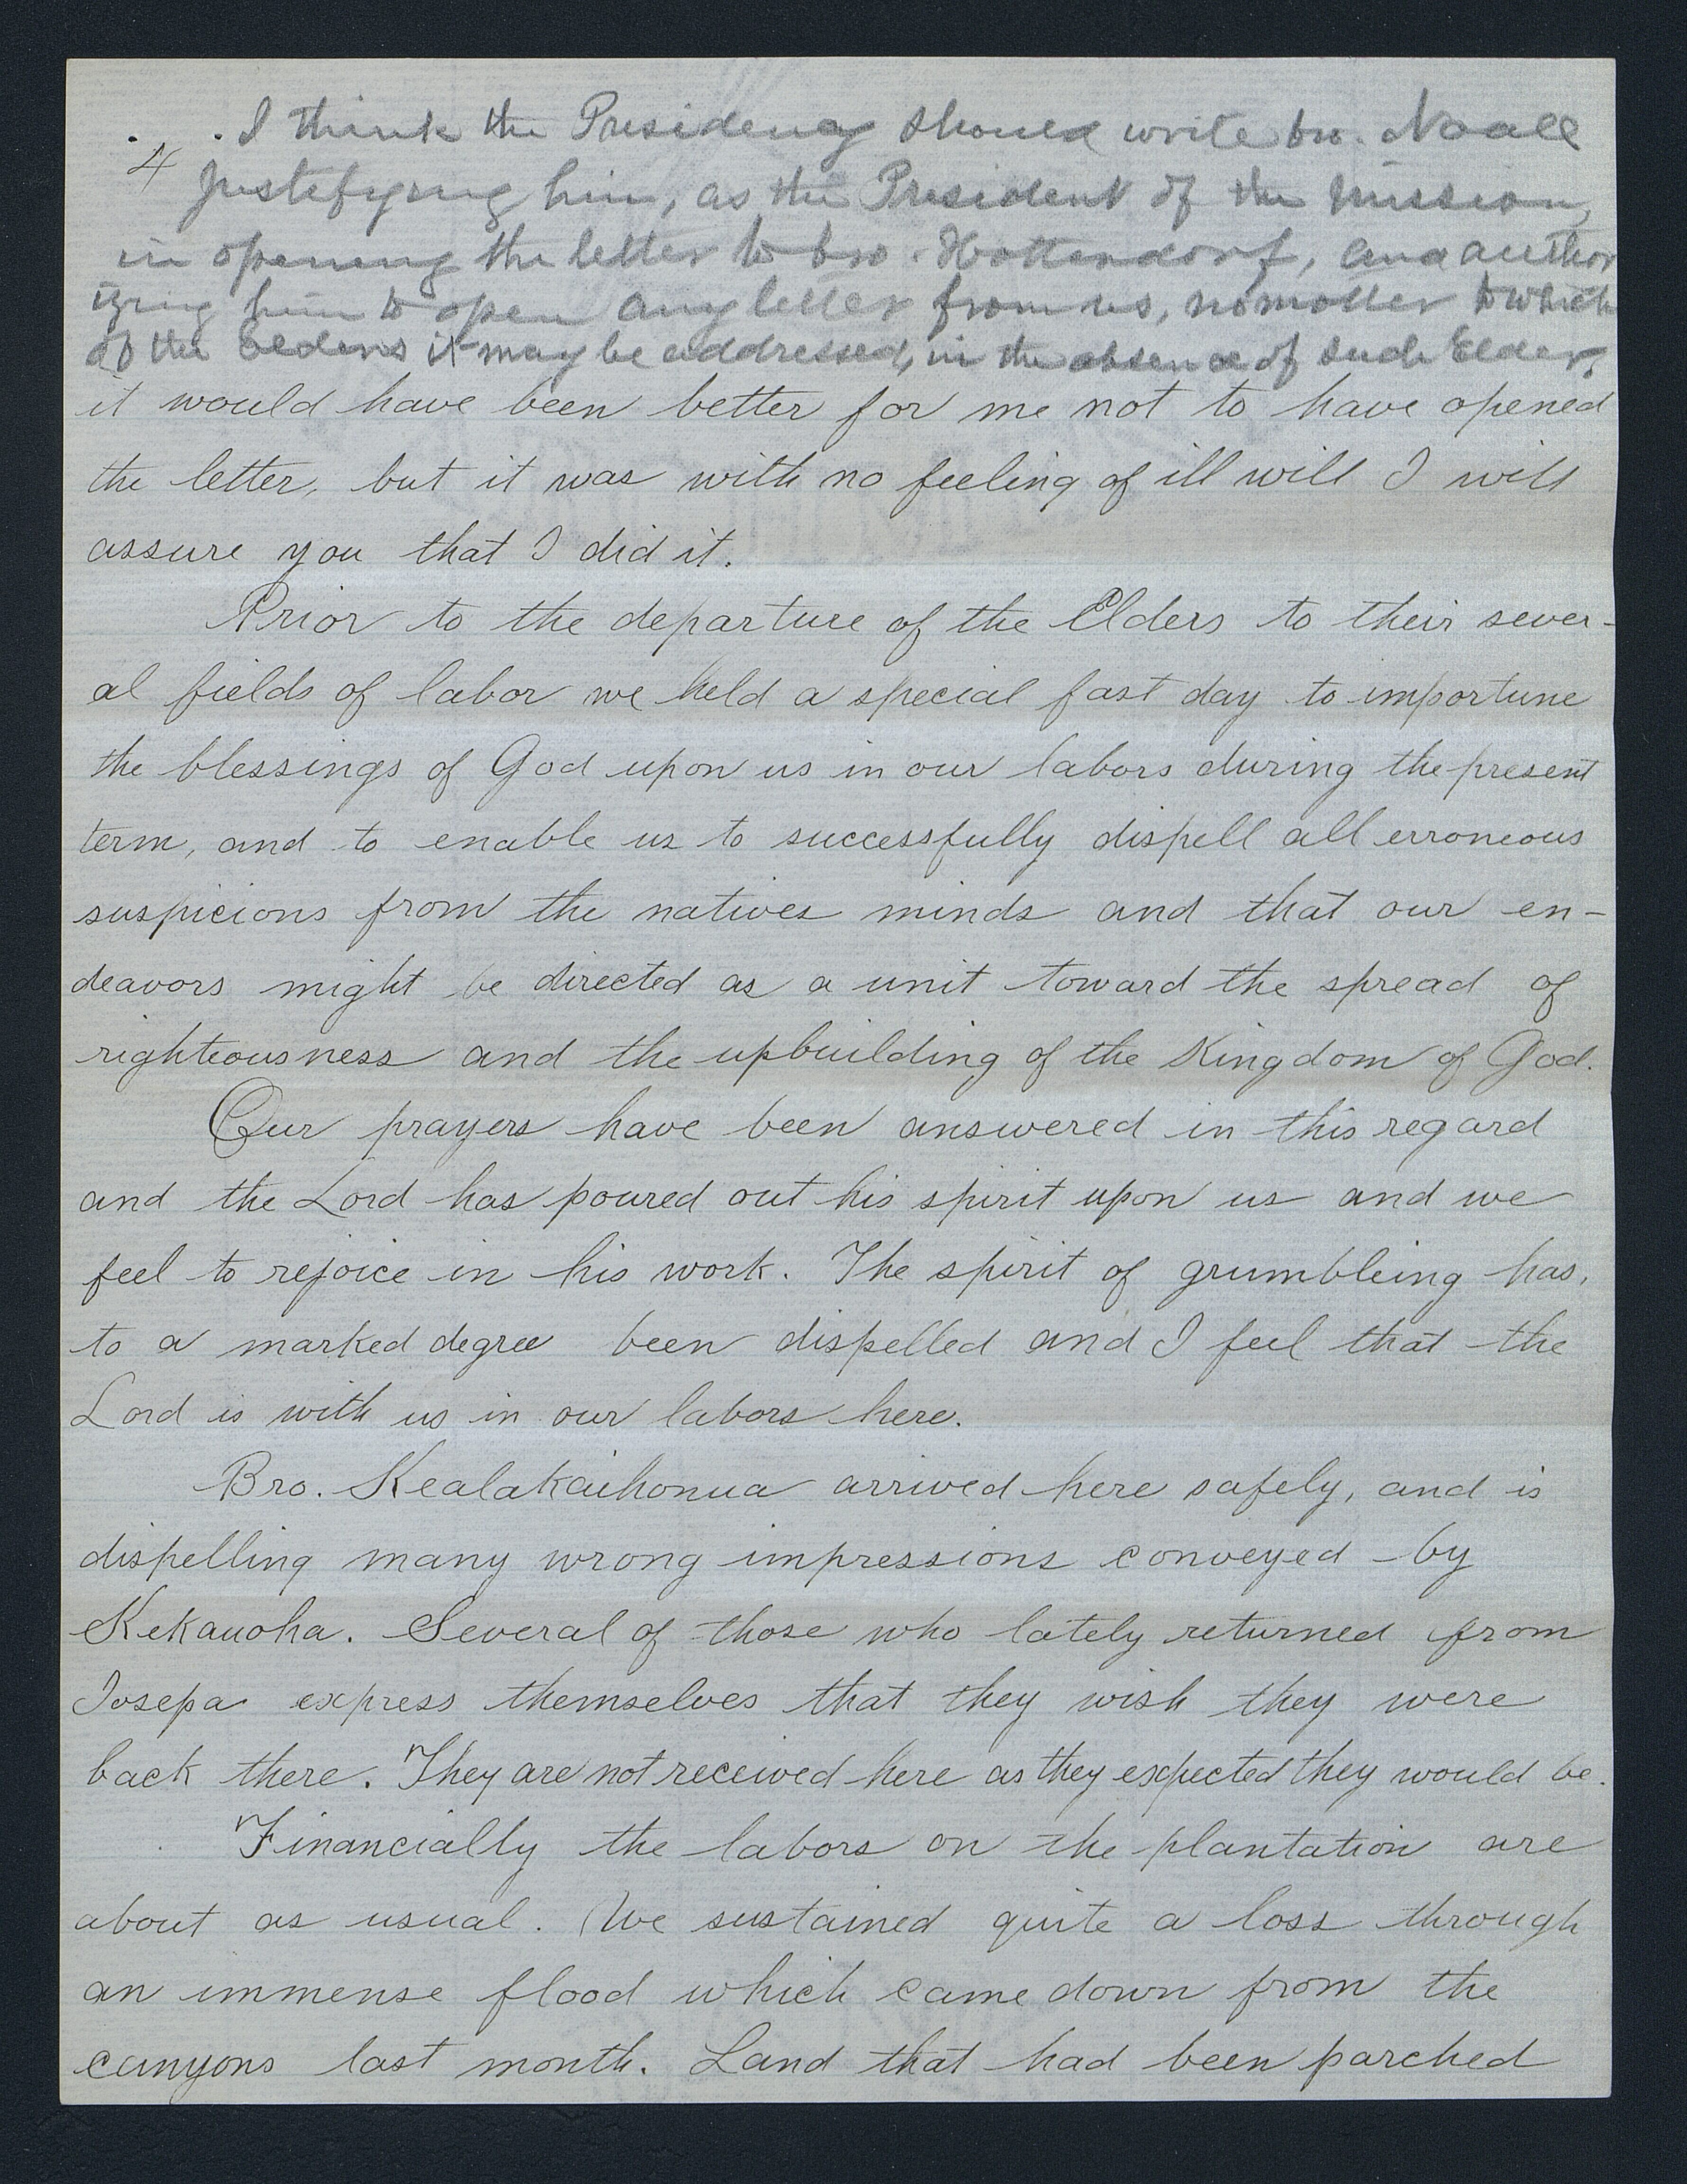 I think the Presidency should write bro. Noall
4
justifying him, as the President of the Mission,
in opening the letter to bro. Hottendorf, and author
izing him to open any letter from us, no matter to which
of the Elders it may be addressed, in the absence of such Elder.
it would have been better for me not to have opened
the letter, but it was with no feeling of ill will I will
assure you that I did it.
Prior to the departure of the Elders to their sever-
al fields of labor we held a special fast day to importune
the blessings of God upon us in our labors during the present
term, and to enable us to successfully dispell all erroneous
suspicions from the natives minds and that our en-
deavors might be directed as a unit toward the spread of
righteousness and the upbuilding of the Kingdom of God.
Our prayers have been answered in this regard
and the Lord has poured out his spirit upon us and we
feel to rejoice in his work. The spirit of grumbleing has,
to a marked degree been dispelled and I feel that the
Lord is with us in our labors here.
Bro. Kealakaihonua arrived here safely, and is
dispelling many wrong impressions conveyed by
Kekauoha. Several of those who lately returned from
Iosepa express themselves that they wish they were
back there. They are not received here as they expected they would be.
Financially the labors on the plantation are
about as usual. We sustained quite a loss through
an immense flood which came down from the
canyons last month. Land that had been parched